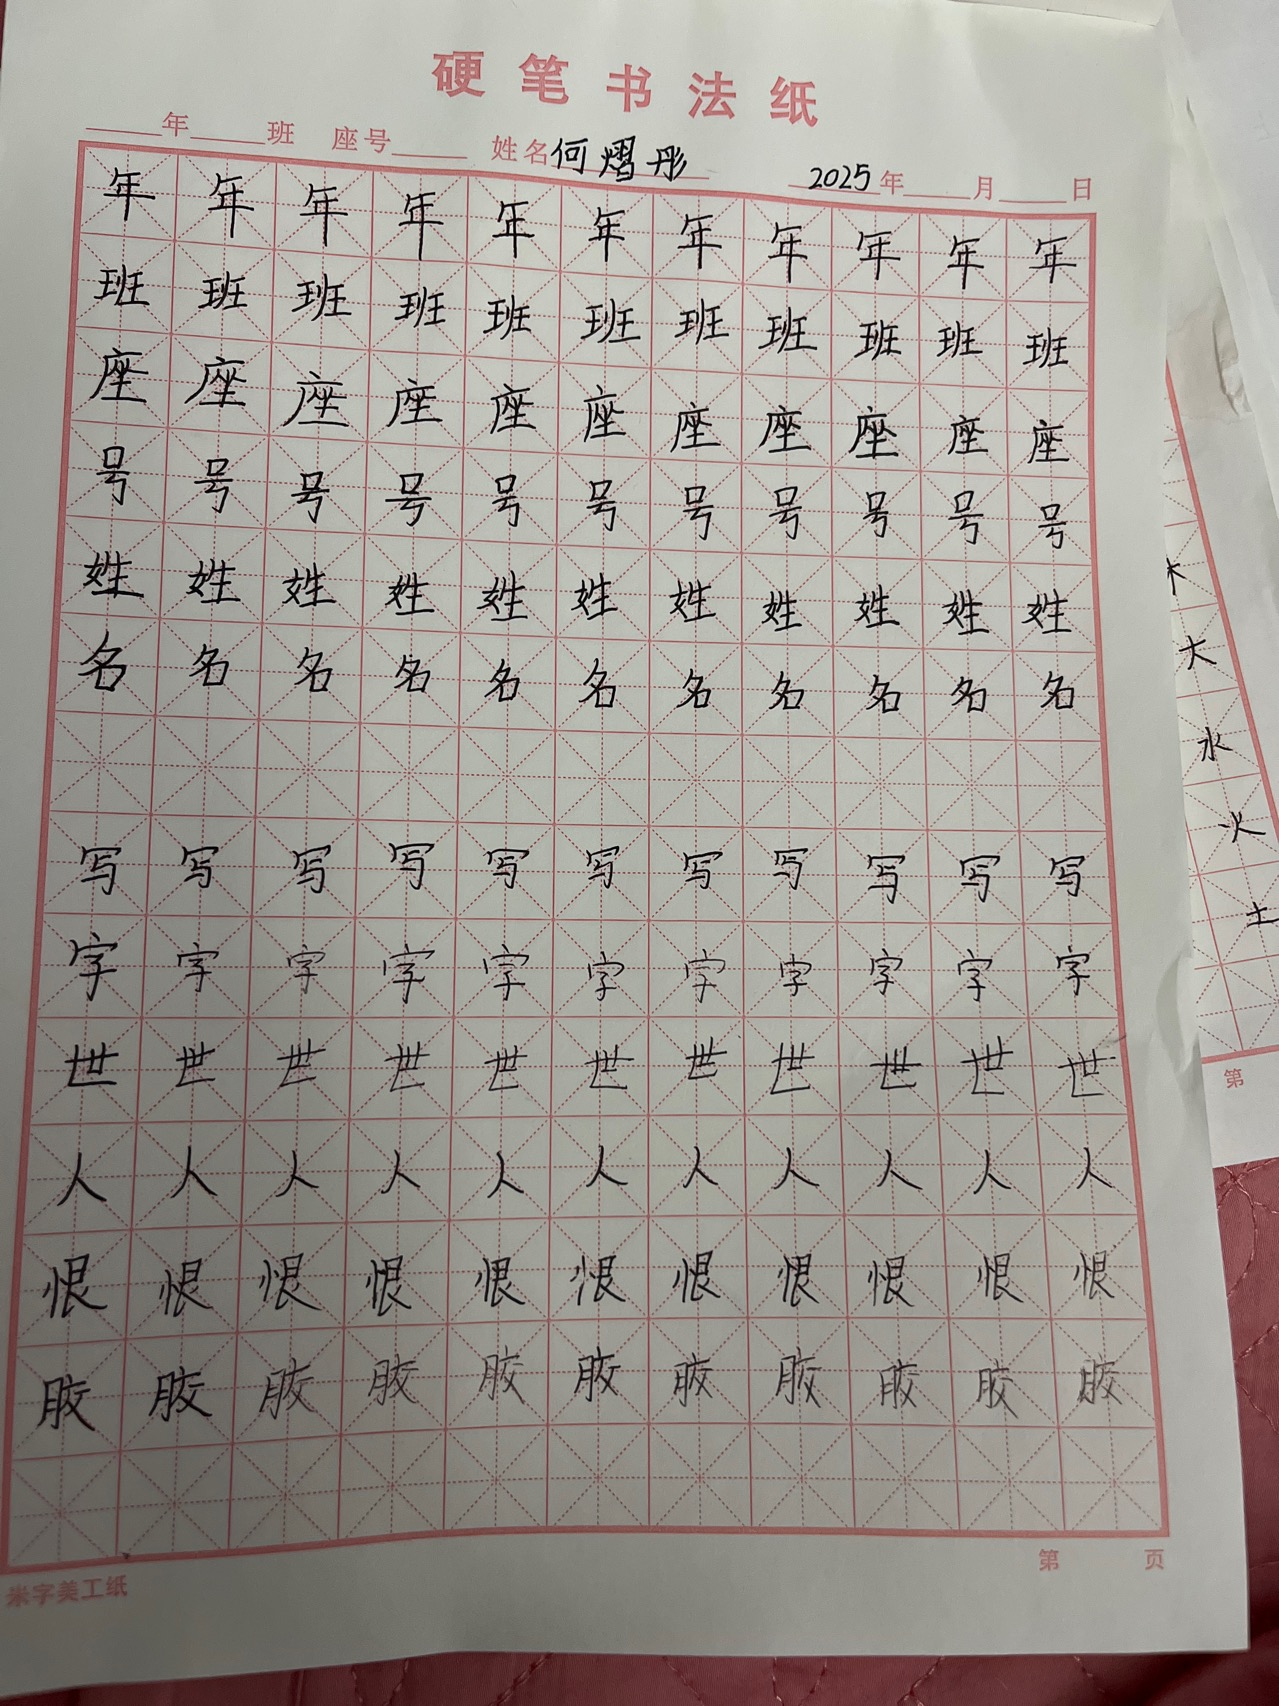 硬笔书法纸
年 班 座号 姓名何熠彤 2025年 月 日
年 年 年 年 年 年 年 年 年 年 年
班 班 班 班 班 班 班 班 班 班 班
座 座 座 座 座 座 座 座 座 座 座
号 号 号 号 号 号 号 号 号 号 号
姓 姓 姓 姓 姓 姓 姓 姓 姓 姓 姓
名 名 名 名 名 名 名 名 名 名 名
写 写 写 写 写 写 写 写 写 写 写
字 字 字 字 字 字 字 字 字 字 字
世 世 世 世 世 世 世 世 世 世 世
人 人 人 人 人 人 人 人 人 人 人
恨 恨 恨 恨 恨 恨 恨 恨 恨 恨 恨
胶 胶 胶 胶 胶 胶 胶 胶 胶 胶 胶
米字美工纸 第 页
大
水
火
土
第